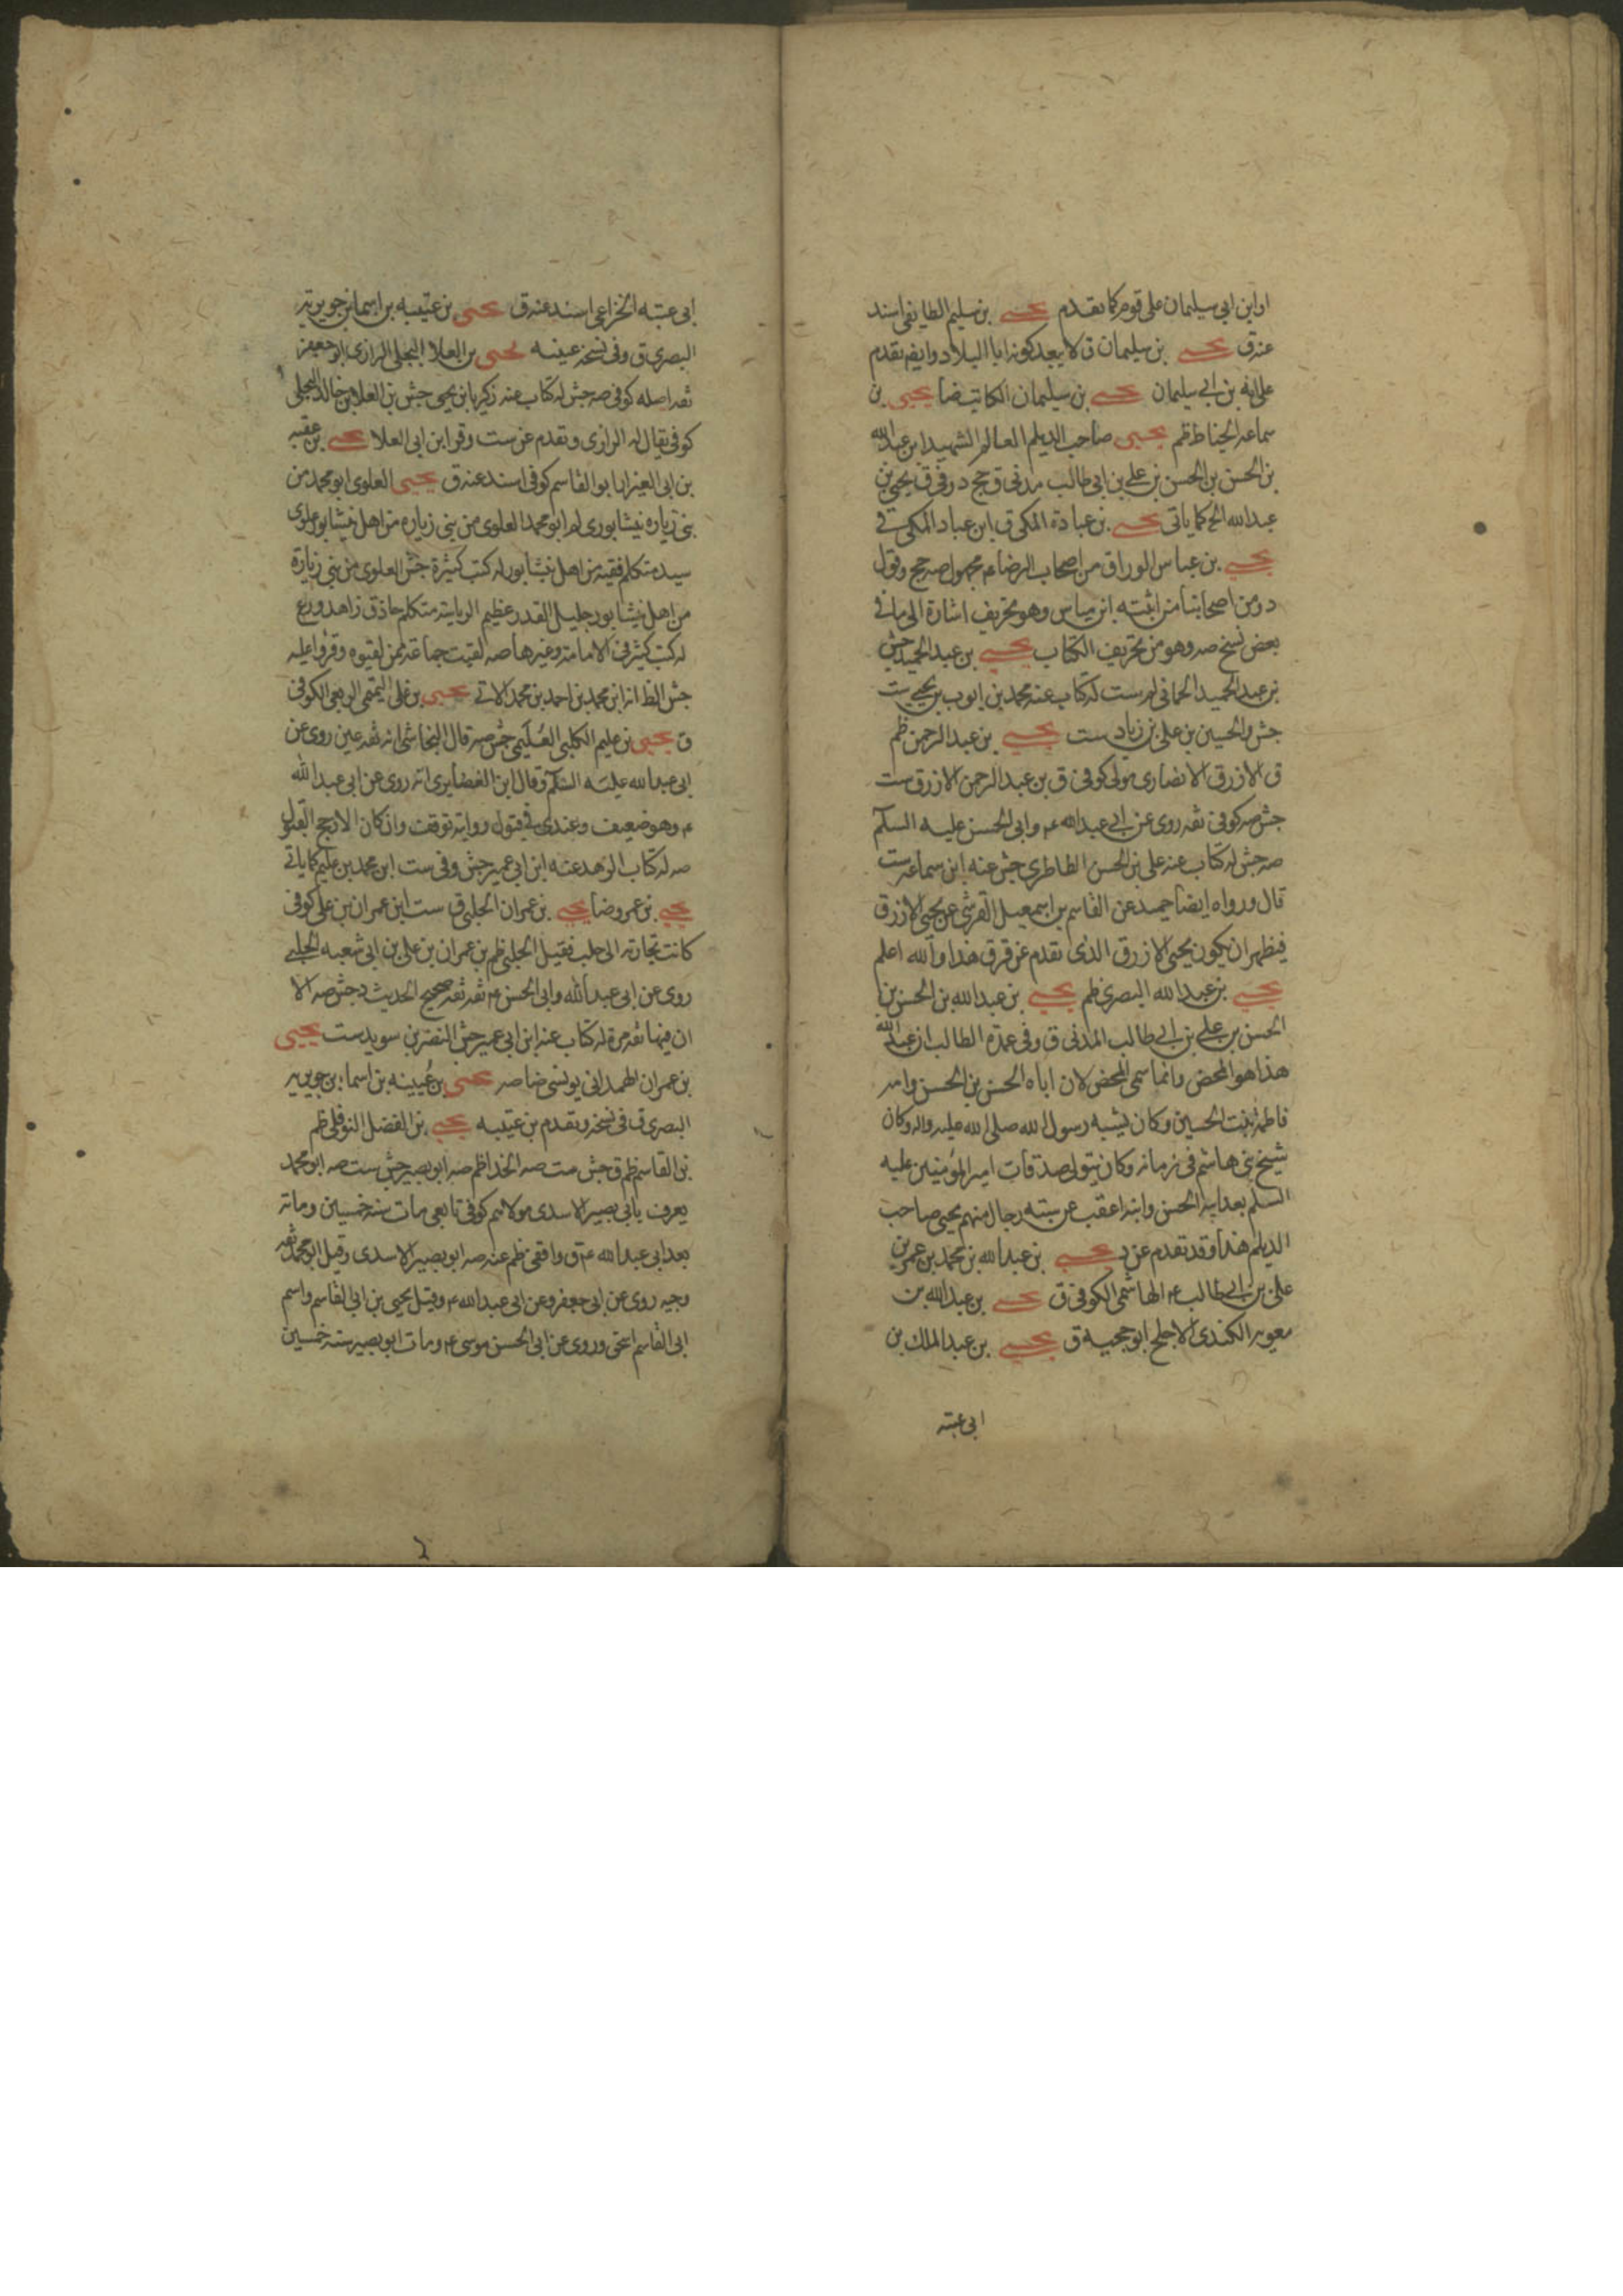 او ابن ابي سليمان على قوم كما تقدم يحيى بن سليم الطايفي اسند
عنه ق يحيى بن سليمان ق لا يبعد كونه ابا البلاد وايضم تقدم
على انه بن ابي سليمان يحيى بن سليمان الكاتب ضا يحيى بن
سماعه الحناط ظم يحيى صاحب الديلم العالم الشهيد ابن عبد الله
بن الحسن بن الحسن بن علي بن ابي طالب مدني ق جح د وفي ق يحيى بن
عبد الله الخ كما ياتى يحيى بن عبادة المكي ق ابن عباد المكي في
يحيى بن عباس الوراق من اصحاب الرضا ع مجهول صه جح وقول
د ومن اصحابنا من اثبته ابن مياس وهو تحريف اشارة الى ما في
بعض نسخ صه وهو من تحريف الكتاب يحيى بن عبد الحميد جش
بن عبد الحميد الحماني لم ست له كتاب عنه محمد بن ايوب بن يحيى ست
جش والحسين بن علي بن زياد ست يحيى بن عبد الرحمن ظم
ق الازرق الانصاري مولى كوفي ق بن عبد الرحمن الازرق ست
جش صه كوفي ثقه روى عن ابي عبد الله ع وابي الحسن عليه السلم
صه جش له كتاب عنه علي بن الحسن الطاطري جش عنه ابن سماعه ست
قال ورواه ايضا حميد عن القاسم بن اسمعيل القرشي عن يحيى الازرق
فيظهر ان يكون يحيى الازرق الذي تقدم عن ق ق هذا والله اعلم
يحيى بن عبد الله البصري ظم يحيى بن عبد الله بن الحسن بن
الحسن بن علي بن ابي طالب المدني ق وفي عمدة الطالب ان عبد الله
هذا هو المحض وانما سمي المحض لان اباه الحسن بن الحسن وامه
فاطمة بنت الحسين وكان يشبه رسول الله صلى الله عليه واله وكان
شيخ بني هاشم في زمانه وكان يتولى صدقات امير المؤمنين عليه
السلم بعد ابيه الحسن وانه اعقب عن ستة رجال منهم يحيى صاحب
الديلم هذا وقد تقدم عن د يحيى بن عبد الله بن محمد بن عمر بن
علي بن ابي طالب ع الهاشمي الكوفي ق يحيى بن عبد الله بن
معويه الكندي الاجلح ابو حجيه ق يحيى بن عبد الملك بن
ابى عتبه
ابى عتبه الخزاعي اسند عنه ق يحيى بن عتيبه بن اسما بن جويريه
البصري ق وفي نسخه عيينه يحيى بن العلا البجلي الرازي ابو جعفر
ثقه اصله كوفي صه جش له كتاب عنه زكريا بن يحيى جش بن العلا بن خالد البجلي
كوفي يقال له الرازى وتقدم عن ست وقر ابن ابى العلا يحيى بن عقبه
بن ابى العيزار ابو القاسم كوفي اسند عنه ق يحيى العلوى ابو محمد من
بنى زياره نيشابورى لم ابو محمد العلوى من بنى زياره من اهل نيشابور علوى
سيد متكلم فقيه من اهل نيشابور له كتب كثيرة جش العلوى من بنى زيارة
من اهل نيشابور جليل القدر عظيم الرياسة متكلم حاذق زاهد ورع
له كتب كثيرة فى الامامة وغيرها صه لقيت جماعه ممن لقيوه وقرؤا عليه
جش الظ انه ابن محمد بن احمد بن محمد الاتى يحيى بن على التميمى الربعى الكوفى
ق يحيى بن عليم الكلبى العُلَيمى جش صه قال النجاشى انه ثقه عين روى عن
ابى عبد الله عليه السلم وقال ابن الغضايرى انه روى عن ابى عبد الله
ع وهو ضعيف وعندى في قبول روايته توقف وان كان الارجح القبول
صه له كتاب الزهد عنه ابن ابى عمير جش وفي ست ابن محمد بن عليم كما ياتى
يحيى بن عمرو ضا يحيى بن عمران الحلبى ق ست ابن عمران بن على كوفى
كانت تجارته الى حلب فقيل الحلبى ظم بن عمران بن على بن ابى شعبه الحلبى
روى عن ابى عبد الله وابى الحسن ع ثقه ثقه صحيح الحديث د جش صه الا
ان فيها ثقه مرة له كتاب عنه ابن ابى عمير جش النضر بن سويد ست يحيى
بن عمران الهمدانى يونسى ضا صه يحيى بن عُيينه بن اسما بن جويريه
البصرى ق فى نسخه وتقدم بن عتيبه يحيى بن الفضل النوفلى ظم
بن القاسم ظم ق جش ست صه الحذا ظم صه ابو بصير جش ست صه ابو محمد
يعرف بابى بصير الاسدى مولاهم كوفى تابعى مات سنه خمسين ومائه
بعد ابى عبد الله ع ق واقفى ظم عنه صه ابو بصير الاسدى وقيل ابو محمد ثقه
وجيه روى عن ابى جعفر وعن ابى عبد الله ع وقيل يحيى بن ابى القاسم واسم
ابى القاسم اسحق وروى عن ابى الحسن موسى ع ومات ابو بصير سنه خمسين